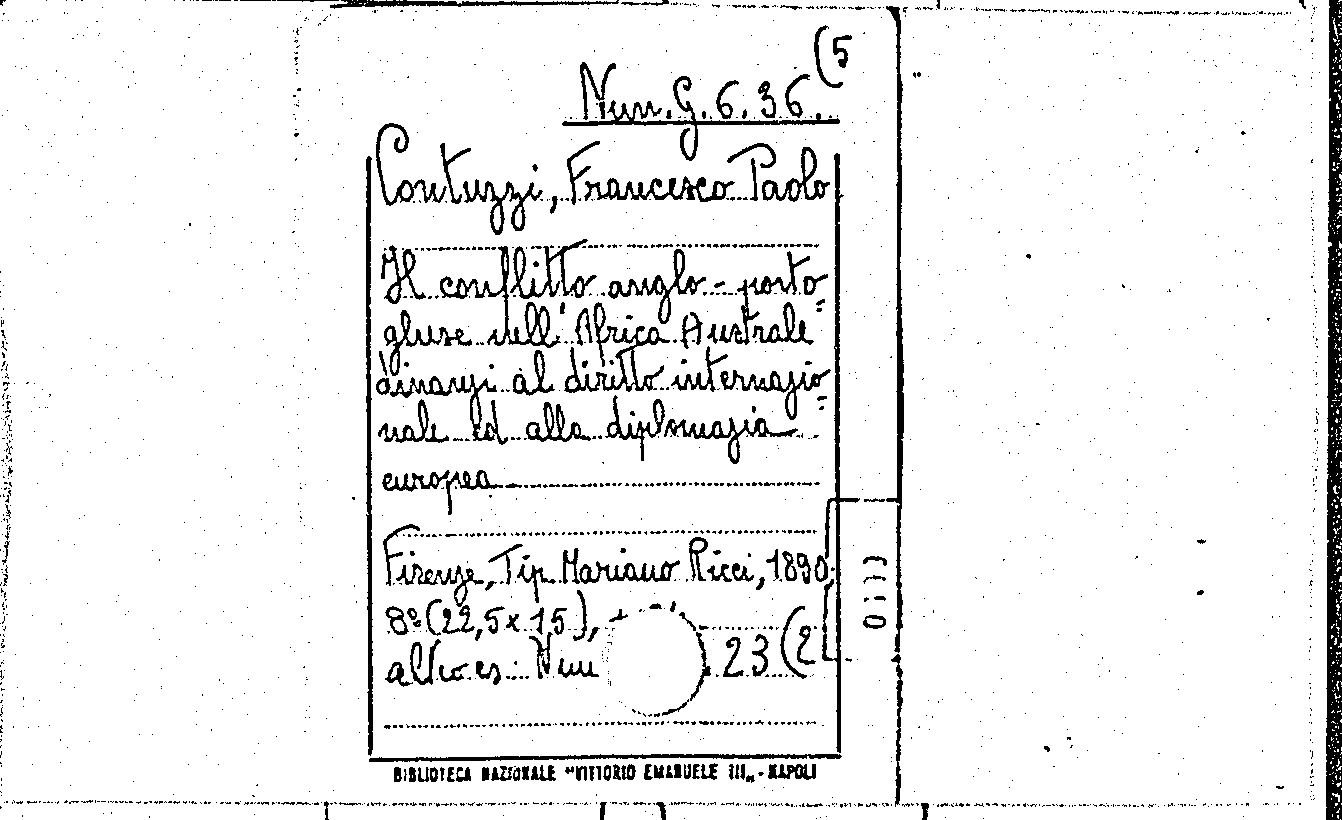 (5
Nun. G. 6. 36.
Contuzzi, Francesco Paolo
Il conflitto anglo-porto=
ghese nell'Africa Australe
dinanzi al diritto internazio=
nale ed alla diplomazia
europea
Firenze, Tip. Mariano Ricci, 1890,
8° (22,5 x 15),
altro es: Nun 23 (2
BIBLIOTECA NAZIONALE "VITTORIO EMANUELE III„ - NAPOLI